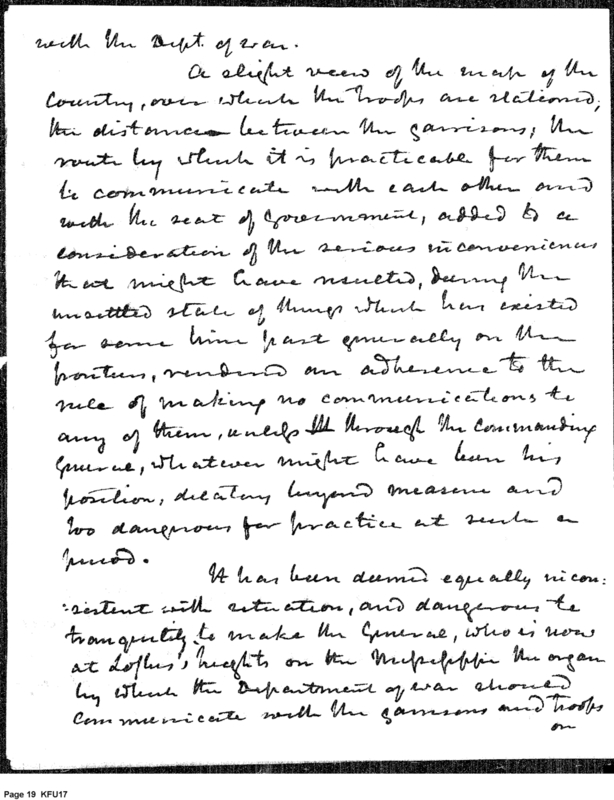 with the Dept. of war.
A slight view of the map of the
Country, over which the Troops are stationed,
the distance between the garrisons, the
route by which it is practicable for them
to communicate with each other and
with the seat of Government, added to a
consideration of the serious inconveniences
that might have resulted, during the
unsettled state of things which has existed
for some time past generally on the
frontiers, rendered an adherence to the
rule of making no communications to
any of them, unless through the commanding
General, whatever might have been his
position, dilatory beyond measure and
too dangerous for practice at such a
period.
It has been deemed equally incon:
:sistent with situation, and dangerous to
tranquility to make the General, who is now
at Loftus's heights on the Mississippi the organ
by which the Department of war should
communicate with the garrisons and troops
on
Page 19 KFU17